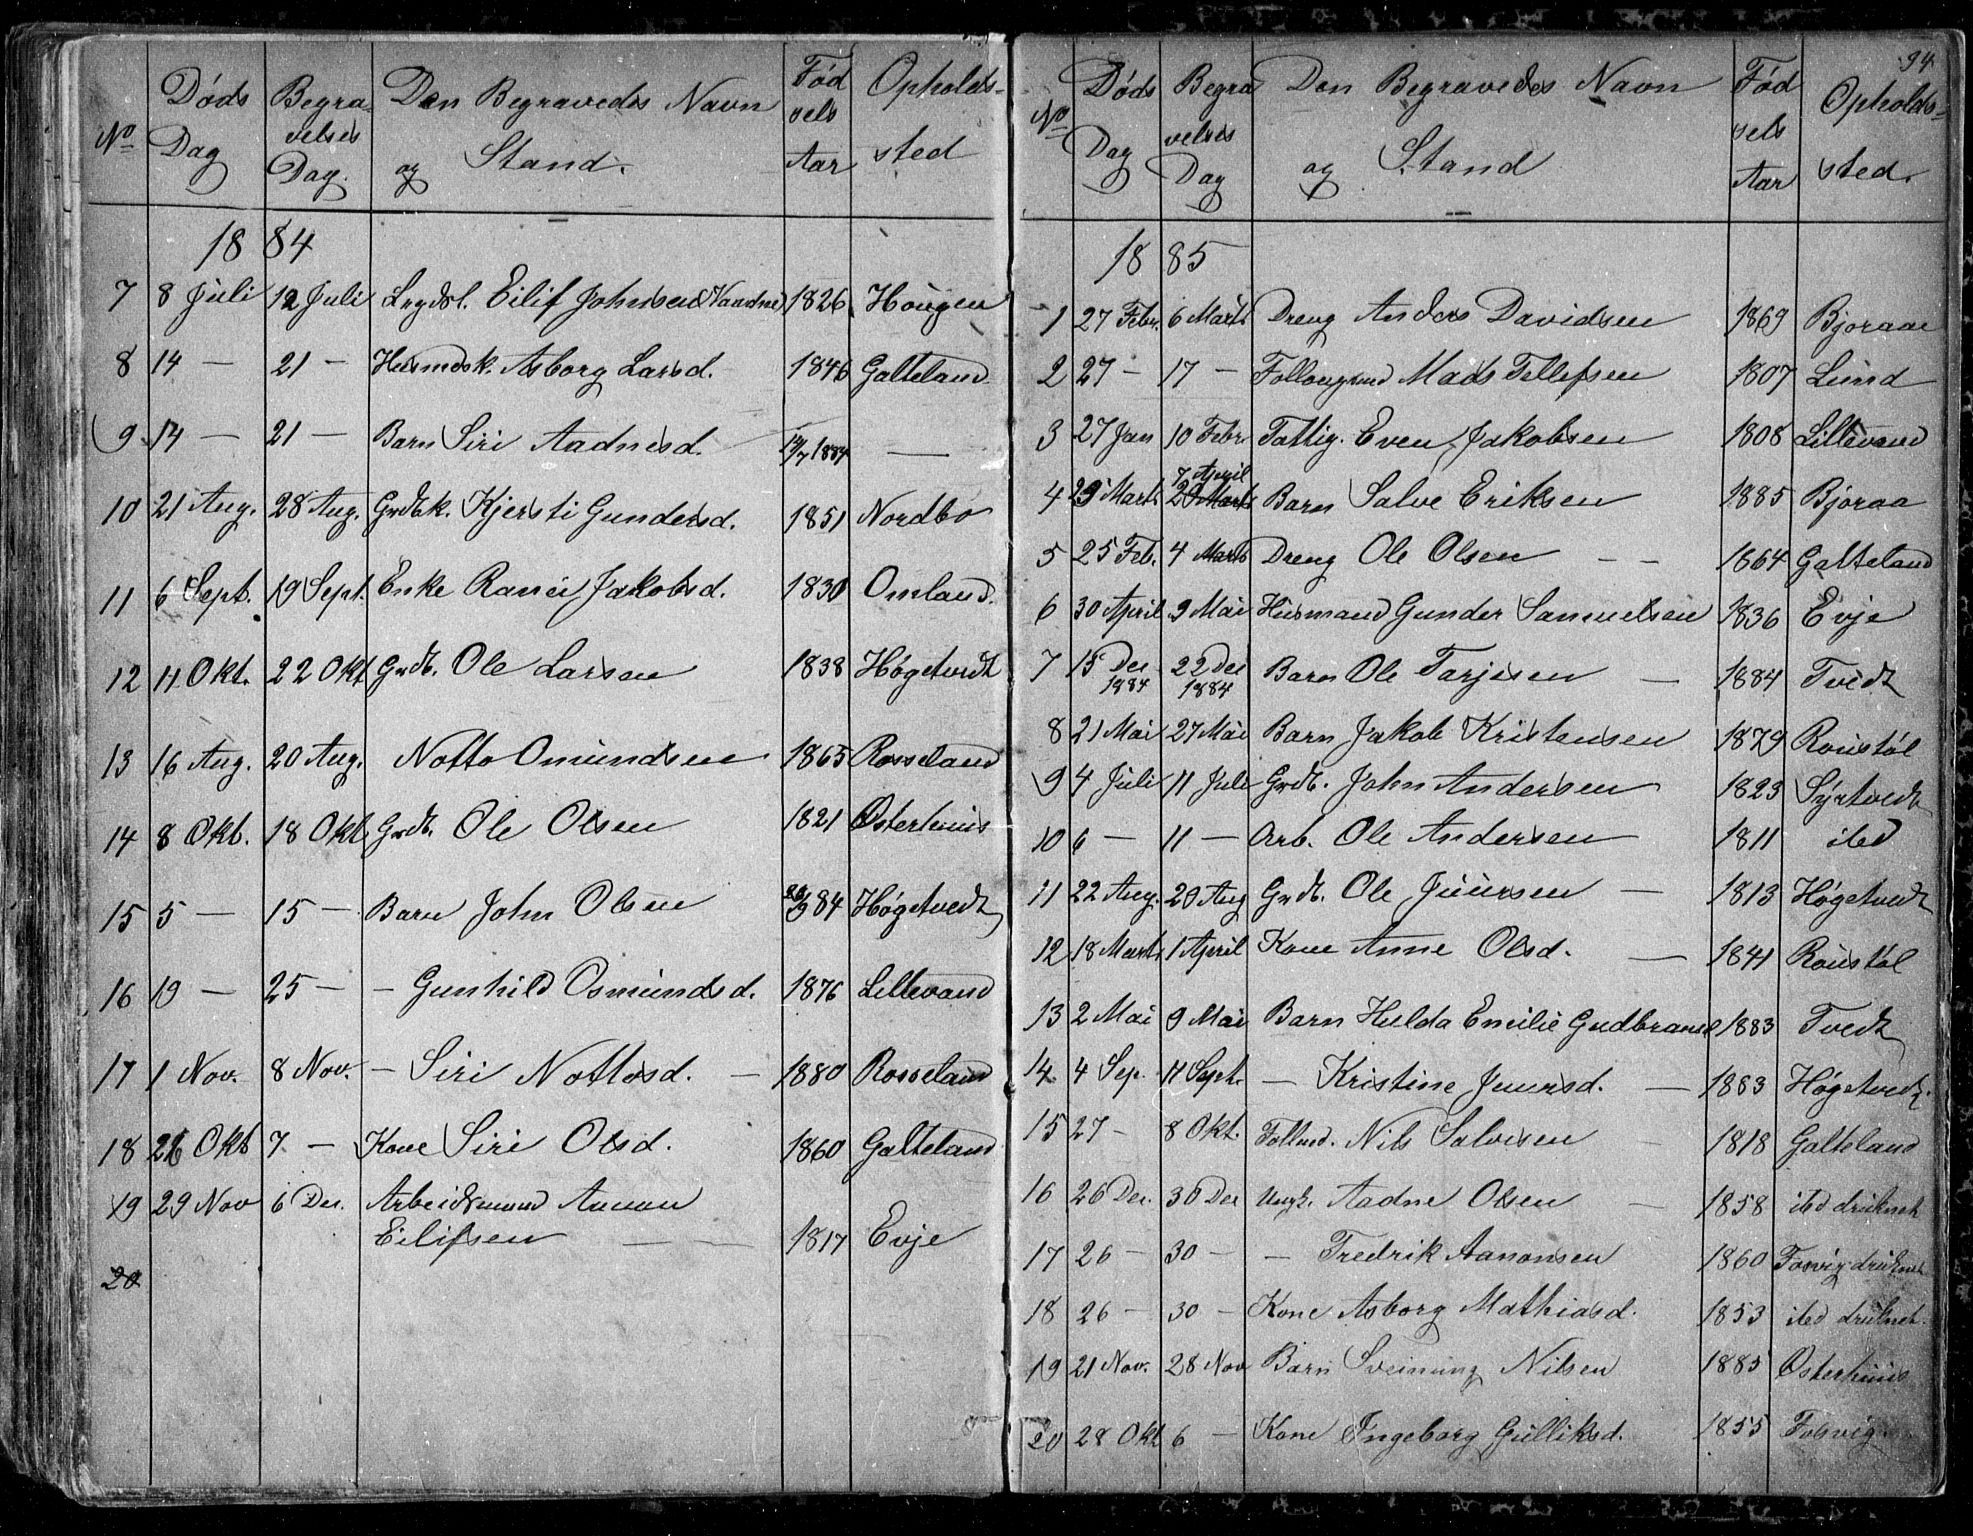 No | Døds Dag | Begravelses Dag. | Den Begravedes Navn og Stand. | Fødselsaar | Opholdssted
1884
7 | 8 Juli | 12 Juli | Lægdsl. Eilif Johnsen (Vandne) | 1826 | Hougen
8 | 14 — | 21 — | Husmdsk. Asborg Larsd. | 1846 | Galteland
9 | 14 — | 21 — | Barn Siri Aadnesd. | 14/7 1884 | —
10 | 21 Aug. | 28 Aug. | Grdbk. Kjersti Gundersd. | 1851 | Nordbø
11 | 6 Sept. | 19 Sept. | Enke Ranei Jakobsd. | 1830 | Omland.
12 | 11 Okt. | 22 Okt | Grdb. Ole Larsen | 1838 | Høgetvedt
13 | 16 Aug. | 20 Aug. | Notto Omundsen | 1865 | Rosseland
14 | 8 Okt. | 18 Okt | Grdb. Ole Olsen | 1821 | Østerhuus
15 | 5 — | 15 — | Barn John Olsen | 84 | Høgetvedt
16 | 19 — | 25 — | — Gunhild Osmundsd. | 1876 | Lillevand
17 | 1 Nov. | 8 Nov. | — Siri Nottosd. — | 1880 | Rosseland
18 | 26 Okt | 7 — | Kone Siri Olsd. | 1860 | Galteland
19 | 29 Nov | 6 Dec. | Arbeidsmand Aanon
Eilifsen — — | 1817 | Evje
20
94
No | Døds Dag | Begravelses Dag | Den Begravedes Navn og Stand | Fødselsaar | Opholdssted.
1885
1 | 27 Febr. | 6 Marts | Dreng Anders Davidsen | 1869 | Bjoraae
2 | 27 — | 17 — | Mads Tellefsen | 1807 | Lund
3 | 27 Jan | 10 Febr | Fattig. Even Jakobsen | 1808 | Lillevand
7 April
4 | 29 Marts | 29 Marts | Barn Salve Eriksen | 1885 | Bjoraa
5 | 25 Feb. | 4 Marts | Dreng Ole Olsen — — | 1864 | Galteland
6 | 30 April | 9 Mai | Husmand Gunder Samuelsen | 1836 | Evje
7 | 15 Dec 1884 | 22 Dec 1884 | Barn Ole Tarjesen — | 1884 | Tvedt
8 | 21 Mai | 27 Mai | Barn Jakob Kristensen | 1879 | Roustøl
9 | 4 Juli | 11 Juli | Grdb. John Andersen | 1823 | Syrtvedt
10 | 6 — | 11 — | Arb. Ole Andersen | 1811 | ibd
11 | 22 Aug. | 29 Aug | Grdb. Ole Juursen — | 1813 | Høgetvedt
12 | 18 Marts | 1 April | Kone Anne Olsd. — | 1841 | Roustøl
13 | 2 Mai | 9 Mai | Barn Hulda Emilie Gudbrand | 1883 | Tvedt
14 | 4 Sep. | 11 Sept. | — Kristine Juursd. — | 1883 | Høgetvedt.
15 | 27 — | 8 Okt. | Follmd. Nils Salvesen — | 1818 | Galteland
16 | 26 Dec. | 30 Dec | Ungk. Aadne Olsen — | 1858 | ibd druknet
17 | 26 — | 30 — | — Fredrik Aanonsen | 1860 | Fosvig druknet
18 | 26 — | 30 — | Kone Asborg Mathiasd. | 1853 | ibd druknet.
19 | 21 Nov. | 28 Nov | Barn Sveinung Nilsen | 1885 | Østerhuus
20 | 28 Okt | 6 — | Kone Ingeborg Gulliksd. | 1855 | Fosvig